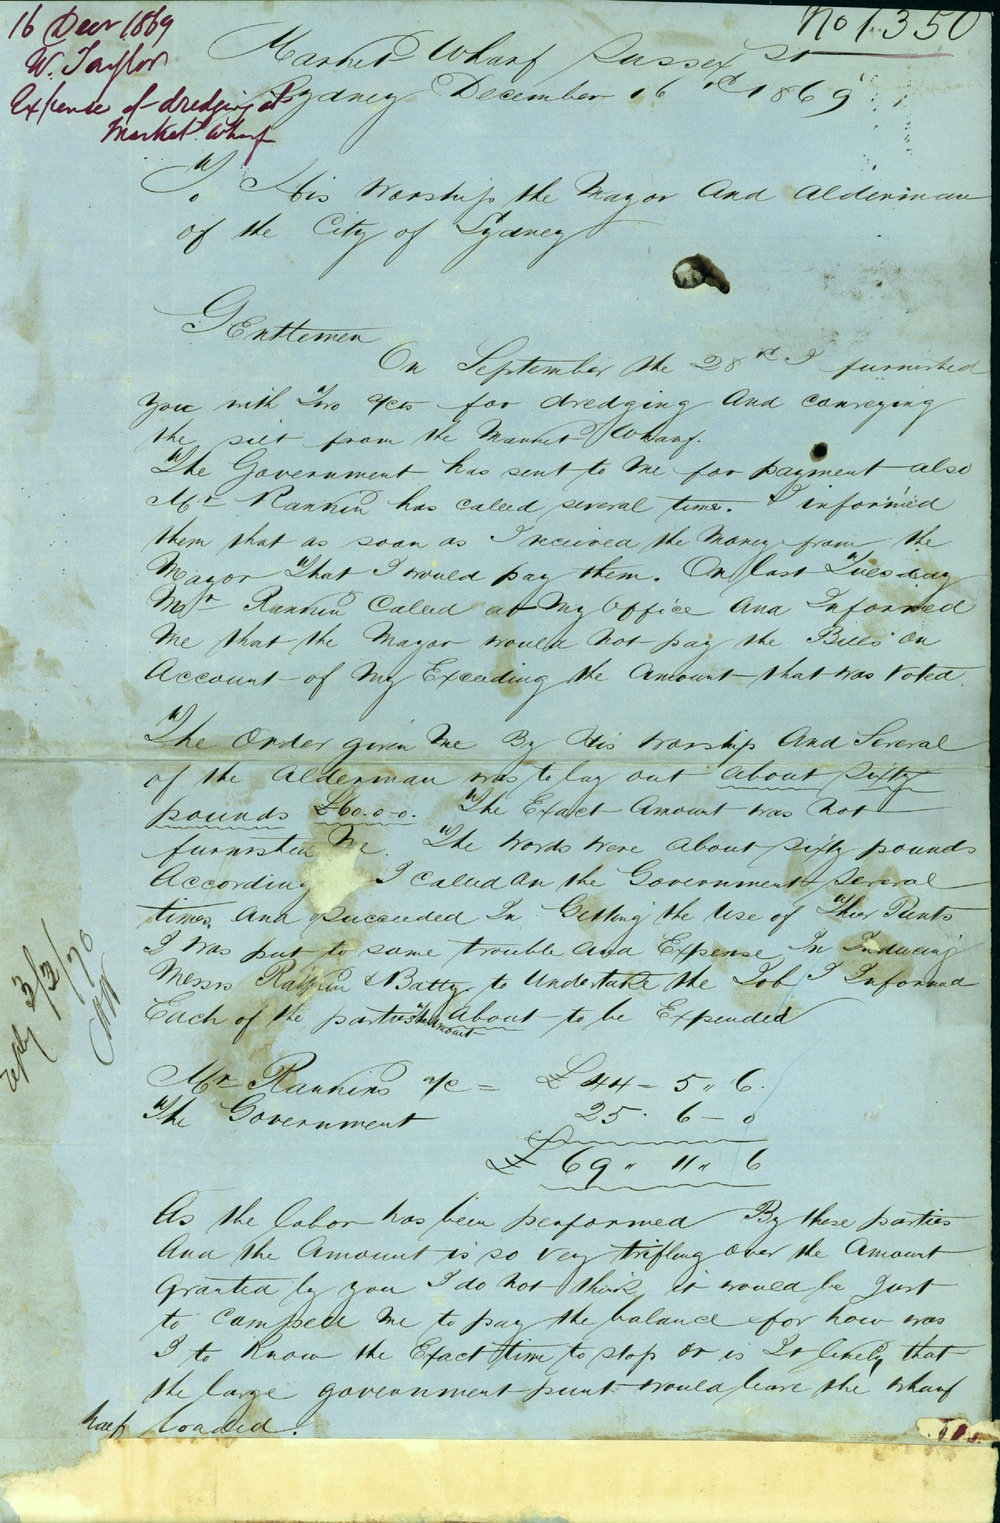 16 Decr 1869
W. Taylor
Expense of dredging at
Market Wharf
No 1350
Market Wharf Sussex St
Sydney December 16th 1869
To His Worship the Mayor And Alderman
of the City of Sydney
Gentlemen
On September the 28th I furnished
you with Two a/cs for dredging And conveying
the silt from the Market Wharf.
The Government has sent to Me for payment also
Mr Rankin has caled several time. I informed
them that as soon as I received the Money from the
Mayor That I would pay them. On last Tuesday
Mr Rankin Caled at My office And Informed
Me that the Mayor would Not pay the Bills on
Account of My Exceeding the Amount that was Voted.
The Order given Me By His Worship And Several
of the Alderman was to lay out about Sixty
pounds £60.0.0. The Exact Amount was Not
furnished Me. The words were about Sixty pounds
According I caled on the Government Several
times And Succeeded In Getting the Use of Thier Punts
I was put to some trouble and Expense In Inducing
Messrs Rankin & Batty to Undertake the Job I Informed
Each of the parties the Amount About to be Expended
Mr Rankins a/c = £44 = 5 " 6.
The Government 25. 6 - 0
£69 " 11 " 6
As the labor has been performed By these parties
And the Amount is so very trifling over the Amount
granted by you I do Not think it would be Just
to Campell Me to pay the balance for how was
I to Know the Exact time to stop or is It likely that
the large government punt would leave the wharf
half loaded.
reply 3/3/70